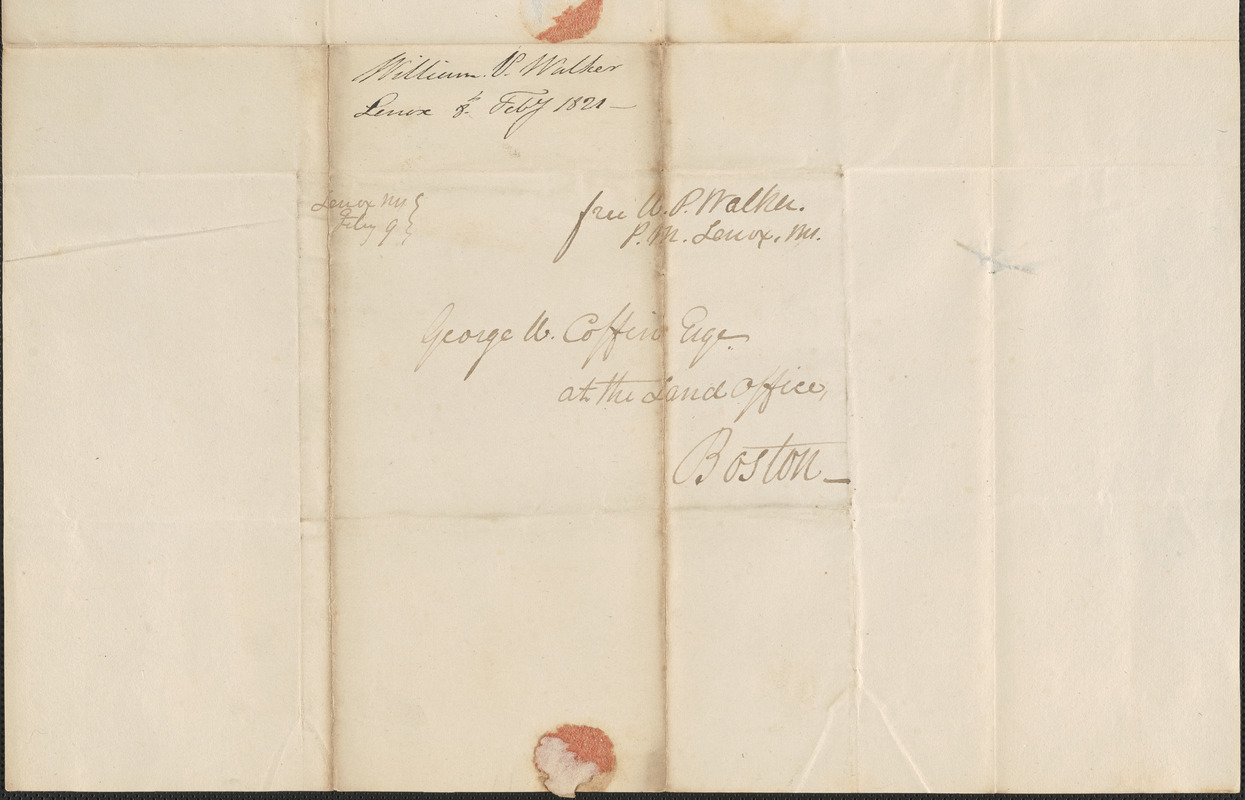 William. P. Walker
Lenox 8th Feby 1821—
Lenox Ms
Feby 9
free W. P. Walker.
P. M. Lenox, Ms.
George W. Coffin Esqe.
at the Land Office,
Boston—